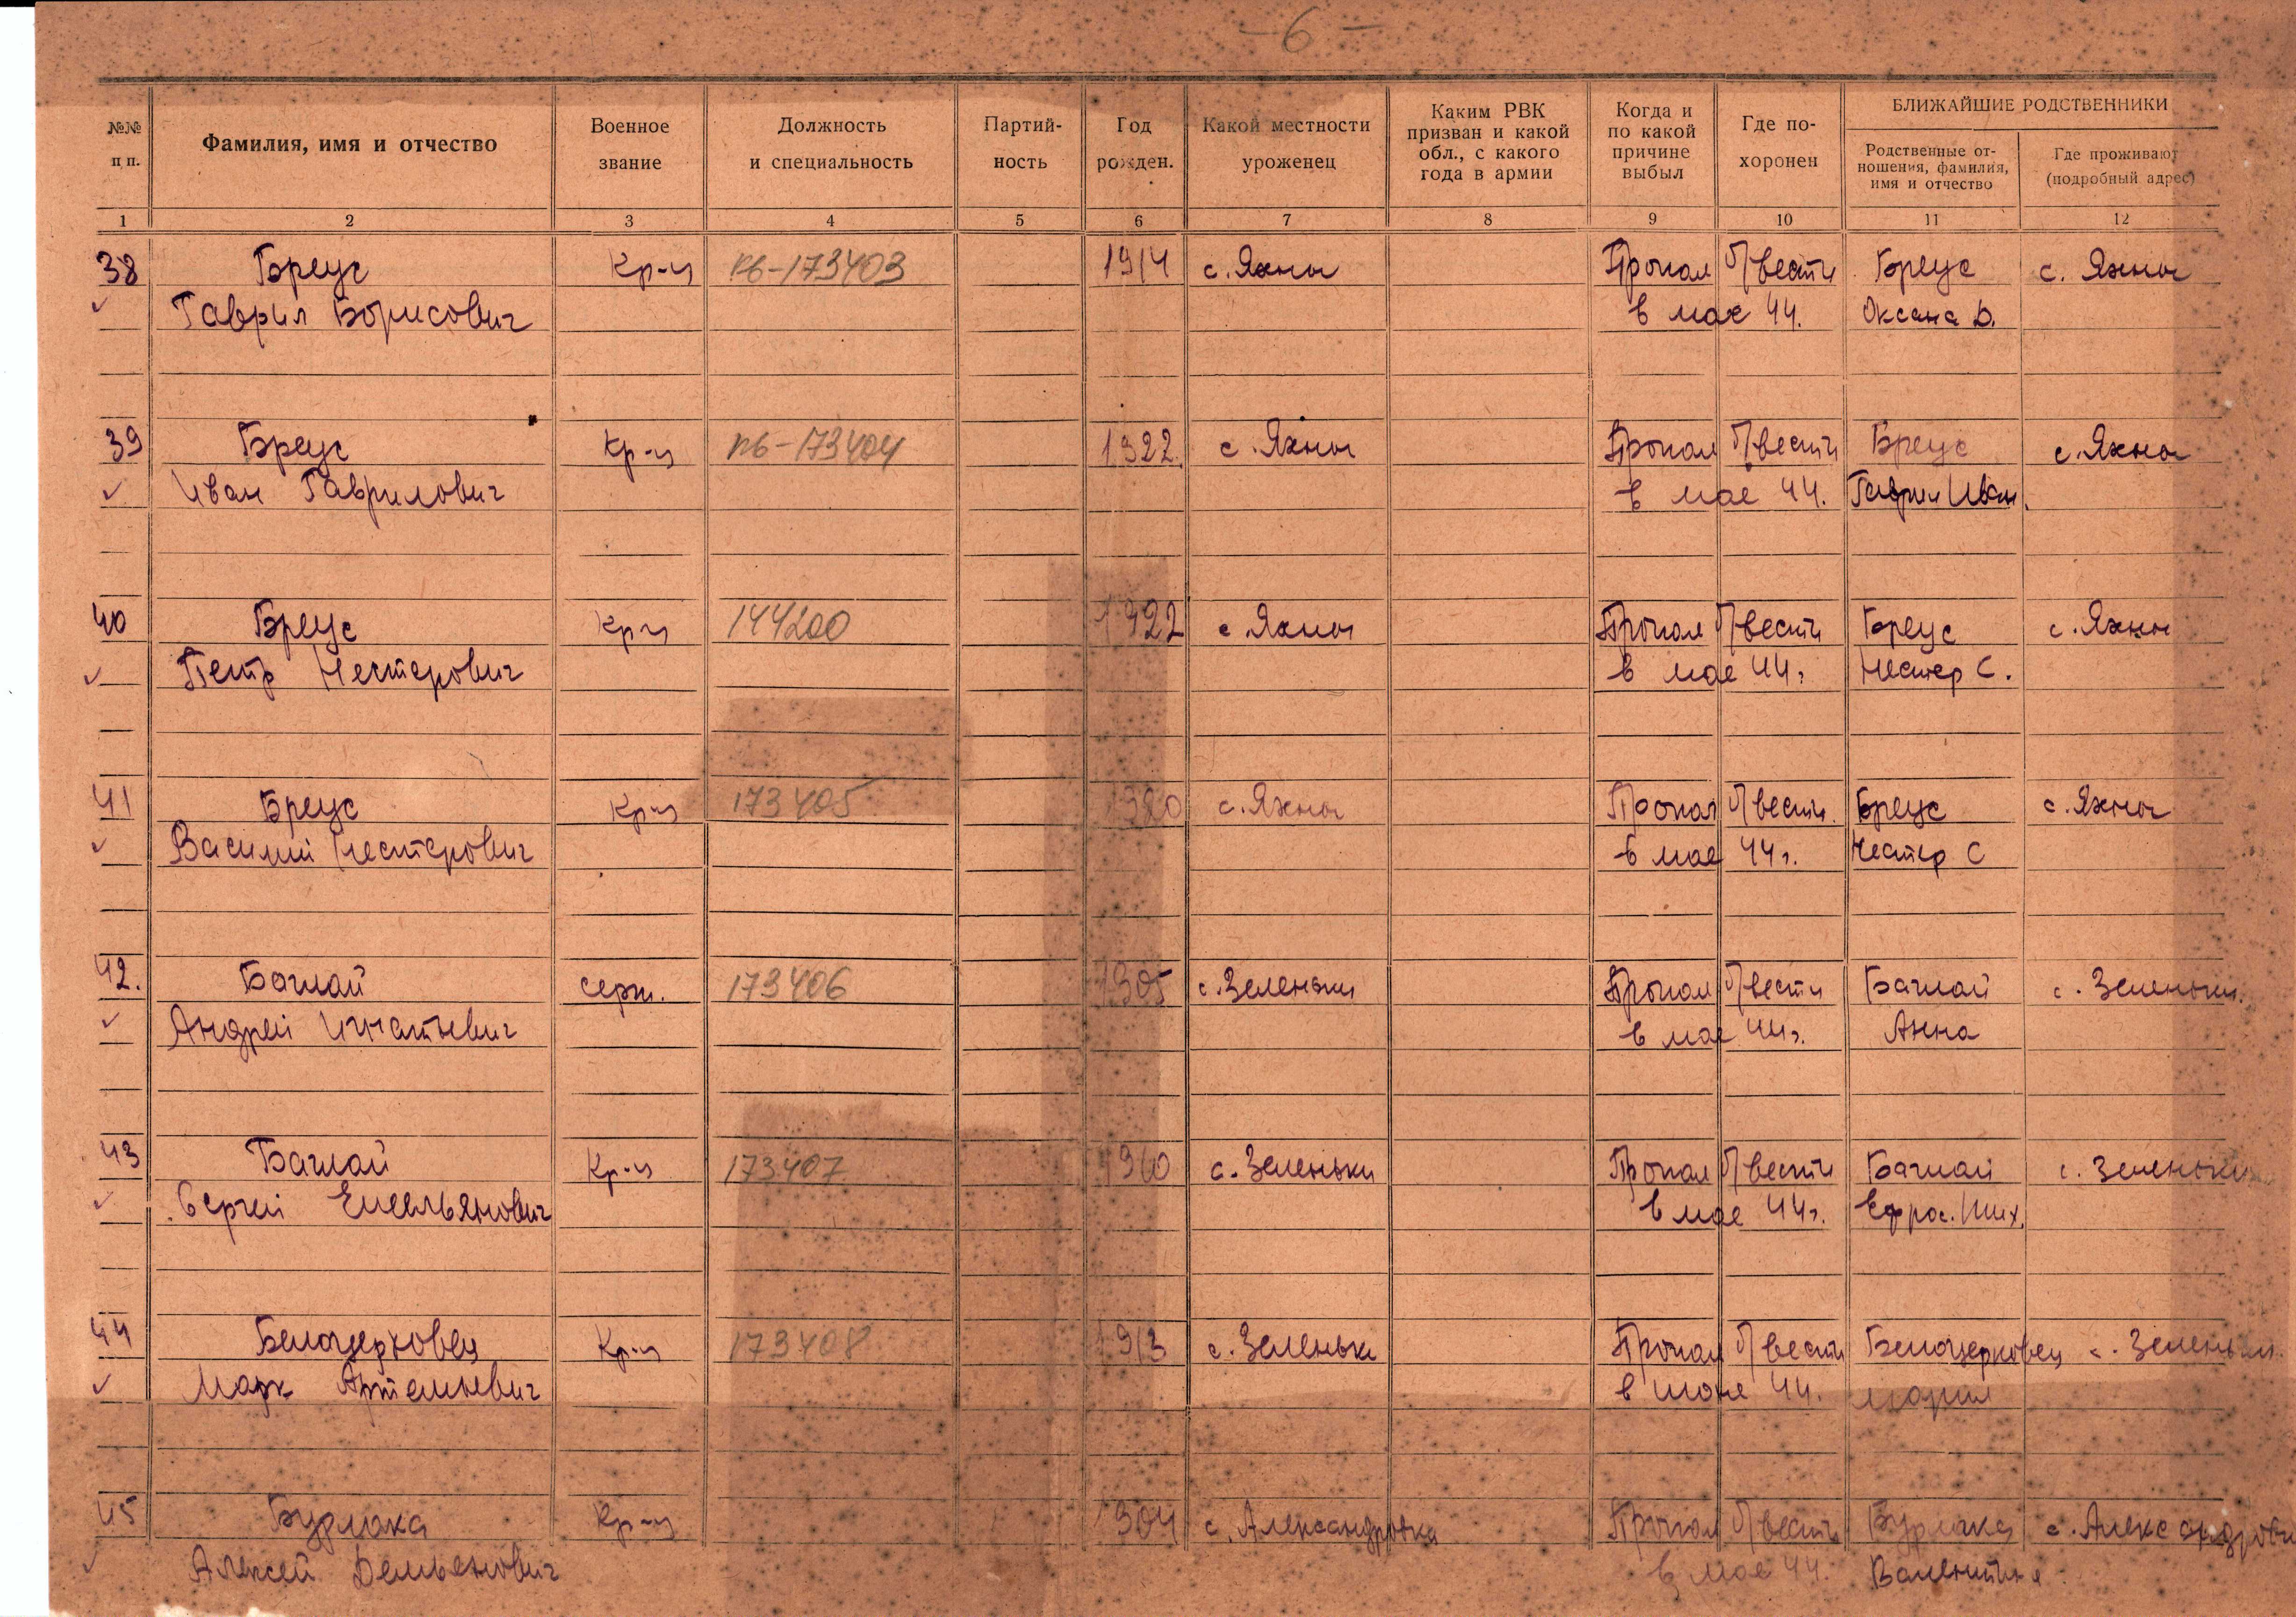 - 6 -
БЛИЖАЙШИЕ РОДСТВЕННИКИ
№№ п п.
Фамилия, имя и отчество
Военное звание
Должность и специальность
Партий- ность
Год рожден.
Какой местности уроженец
Каким РВК призван и какой обл., с какого года в армии
Когда и по какой причине выбыл
Где по- хоронен
Родственные от- ношения, фамилия, имя и отчество
Где проживают (подробный адрес)
1 2 3 4 5 6 7 8 9 10 11 12
38 Бреус Кр-ц пб-173403 1914 с. Яхны Пропал б/вести Бреус с. Яхны
Гаврил Борисович в мае 44. Оксана Д.
39 Бреус Кр-ц пб-173404 1922 с. Яхны Пропал б/вести Бреус с. Яхны
Иван Гаврилович в мае 44. Гаврил Иван.
40 Бреус Кр-ц 144200 1922 с. Яхны Пропал б/вести Бреус с. Яхны
Петр Нестерович в мае 44г. Нестер С.
41 Бреус Кр-ц 173405 с. Яхны Пропал б/вести. Бреус с. Яхны
Василий Нестерович в мае 44г. Нестер С
42. Баглай серж. 173406 1905 с. Зеленьки Пропал б/вести Баглай с. Зеленьки.
Андрей Игнатьевич в мае 44г. Анна
43 Баглай Кр-ц 173407 с. Зеленьки Пропал б/вести Баглай с. Зеленьки
Сергей Емельянович в мае 44г. Ефрос. Мих.
44 Белоцерковец Кр-ц 173408 1913 с. Зеленьки Пропал б/вести Белоцерковец с. Зеленьки.
Марк Артемьевич в июне 44. Мария
45 Бурлака Кр-ц 1904 с. Александровка Пропал б/вести Бурлака с. Александровка
Алексей Демьянович в мае 44. Валентина